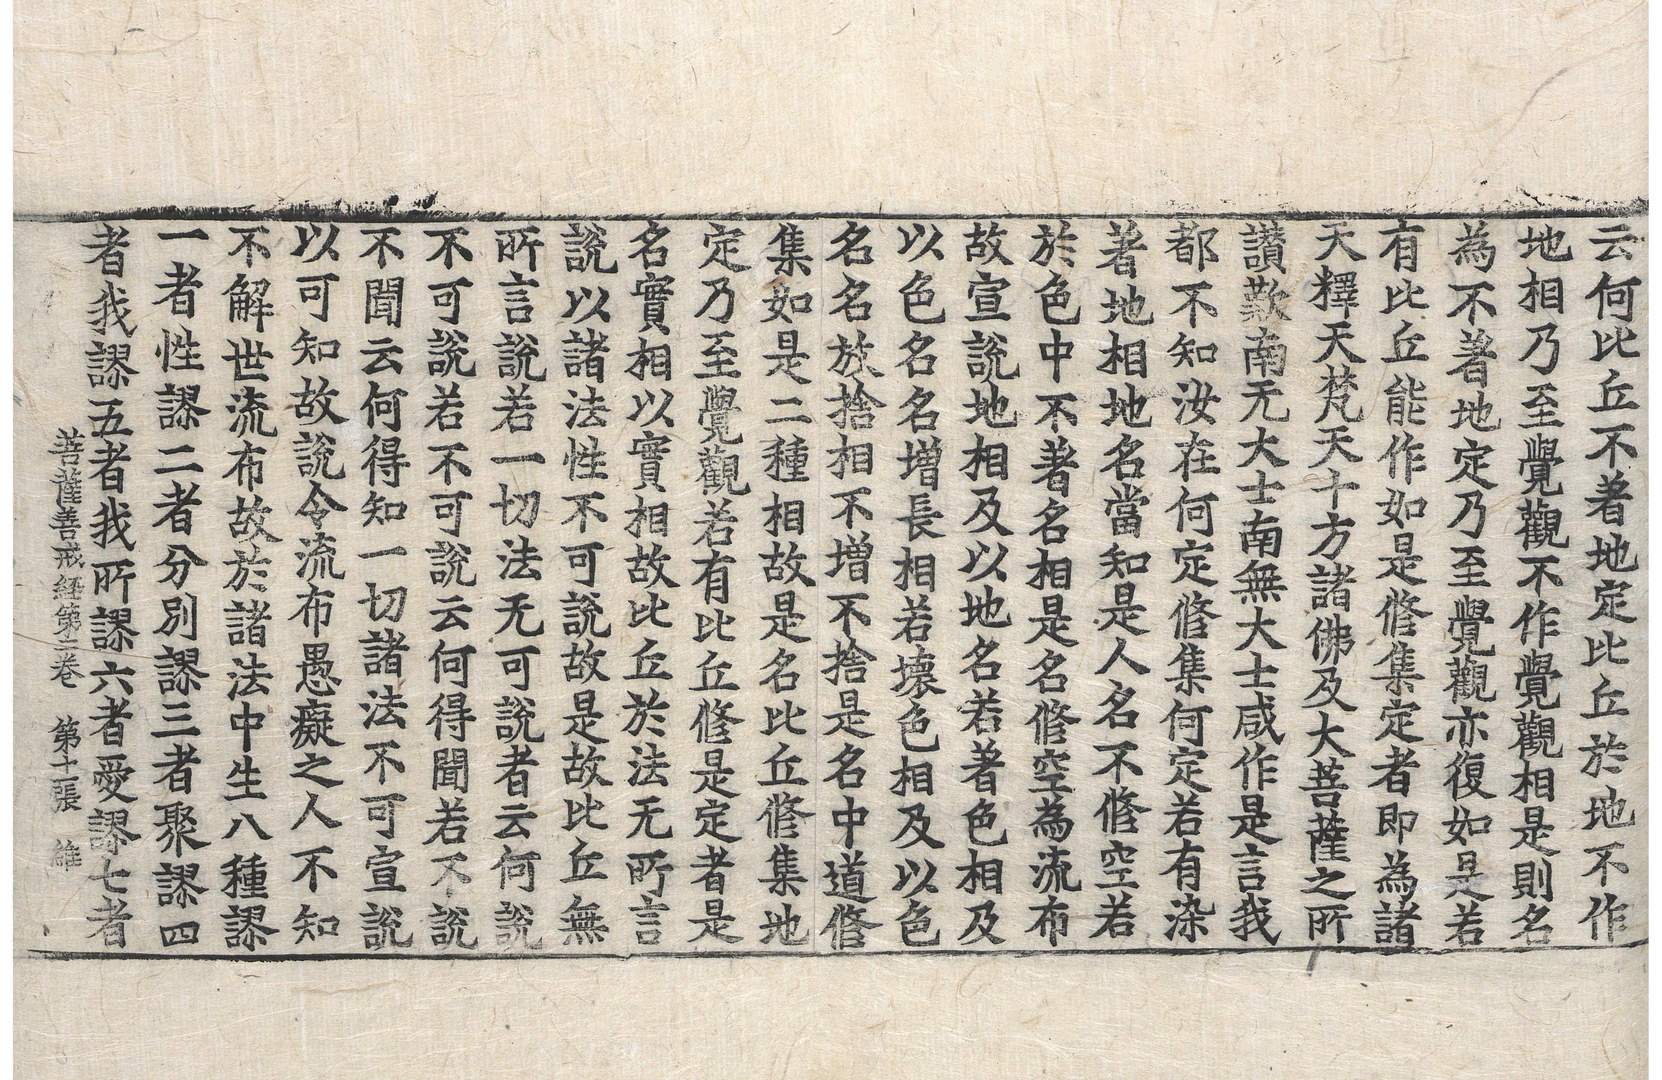 云何比丘不著地定比丘於地不作
地相乃至覺觀不作覺觀相是則名
為不著地定乃至覺觀亦復如是若
有比丘能作如是修集定者即為諸
天釋天梵天十方諸佛及大菩薩之所
讚歎南无大士南無大士咸作是言我
都不知汝在何定修集何定若有染
著地相地名當知是人名不修空若
於色中不著名相是名修空為流布
故宣說地相及以地名若著色相及
以色名名增長相若壞色相及以色
名名放捨相不增不捨是名中道修
集如是二種相故是名比丘修集地
定乃至覺觀若有比丘修是定者是
名實相以實相故比丘於法无所言
說以諸法性不可說故是故比丘無
所言說若一切法无可說者云何說
不可說若不可說云何得聞若不說
不聞云何得知一切諸法不可宣說
以可知故說令流布愚癡之人不知
不解世流布故於諸法中生八種謬
一者性謬二者分別謬三者聚謬四
者我謬五者我所謬六者愛謬七者
菩薩善戒經第二卷 第十張 維